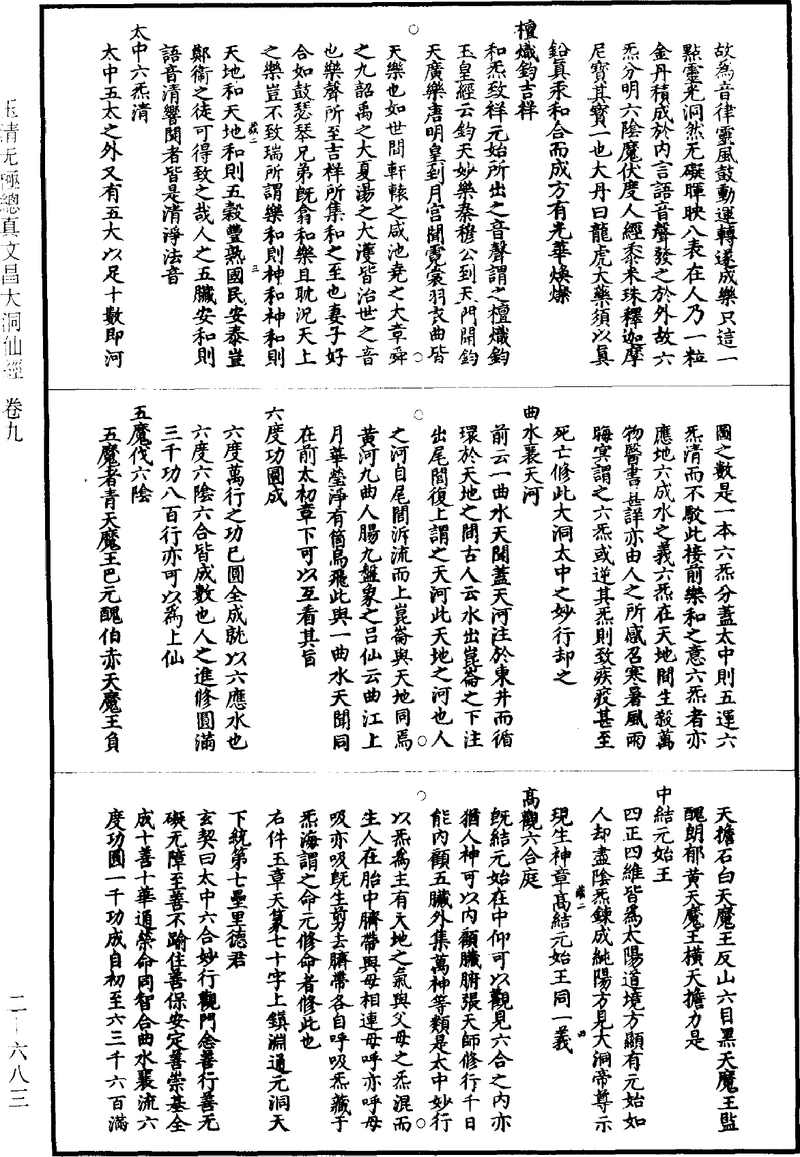 故為音律靈風鼓動運轉遂成樂只這一
點靈光洞然无礙暉映八表在人乃一粒
金丹積成於內言語音聲發之於外故六
炁分明六陰魔伏度人經黍米珠釋迦摩
尼寶其寶一也大丹曰龍虎大藥須以真
鉛真汞和合而成方有光華煥爍
檀熾鈞吉祥
和炁致祥元始所出之音聲謂之檀熾鈞
玉皇經云鈞天妙樂秦穆公到天門開鈞
天廣樂唐明皇到月宮聞霓裳羽衣曲皆
天樂也如世間軒轅之咸池堯之大章舜
之九韶禹之大夏湯之大濩皆治世之音
也樂聲所至吉祥所集和之至也妻子好
合如鼓瑟琴兄弟既翕和樂且耽況天上
之樂豈不致瑞所謂樂和則神和神和則
天地和天地和則五穀豐熟國民安泰豈
鄭衛之徒可得致之哉人之五臟安和則
語音清響聞者皆是清淨法音
太中六炁清
太中五太之外又有五大以足十數即河
圖之數是一本六炁分蓋太中則五運六
炁清而不駁此接前樂和之意六炁者亦
應地六成水之義六炁在天地間生殺萬
物醫書甚詳亦由人之所感召寒暑風雨
晦冥謂之六炁或逆其炁則致疾疫甚至
死亡修此大洞太中之妙行却之
曲水襄天河
前云一曲水天聞蓋天河注於東井而循
環於天地之間古人云水出崑崙之下注
出尾閭復上謂之天河此天地之河也人
之河自尾閭泝流而上崑崙與天地同焉
黃河九曲人腸九盤象之呂仙云曲江上
月華瑩淨有箇烏飛此與一曲水天聞同
在前太初章下可以互看其旨
六度功圓成
六度萬行之功已圓全成就以六應水也
六度六陰六合皆成數也人之進修圓滿
三千功八百行亦可以為上仙
五魔伐六陰
五魔者青天魔王巴元醜伯赤天魔王負
天擔石白天魔王反山六目黑天魔王監
醜朗郁黃天魔王橫天擔力是
中結元始王
四正四維皆為太陽道境方顯有元始如
人却盡陰炁鍊成純陽方見大洞帝尊示
現生神章高結元始王同一義
高觀六合庭
既結元始在中仰可以觀見六合之內亦
猶人神可以內顧臟腑張天師修行千日
能內顧五臟外集萬神等類是太中妙行
以炁為主有天地之氣與父母之炁混而
生人在胎中臍帶與母相連母呼亦呼母
吸亦吸既生剪去臍帶各自呼吸炁藏于
炁海謂之命元修命者修此也
右件玉章天篆七十字上鎮淵通元洞天
下統第七壘里德君
玄契曰太中六合妙行觀門念善行善无
礙无障至善不踰住善保安定善崇基全
成十善十華通榮命同智合曲水襄流六
度功圓一千功成自初至六三千六百滿
玉清无極總真文昌大洞仙經 卷九
二－六八三